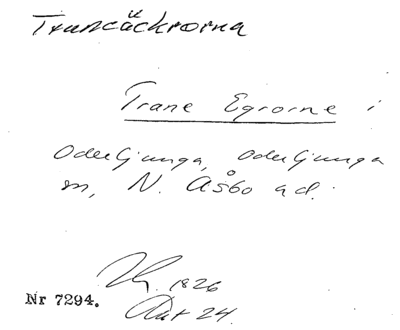 Traneäckrorna
Trane Egrorne i
Oderljunga, Oderljunga
sn, N. Åsbo hd.
1826
Akt 24.
Nr 7294.